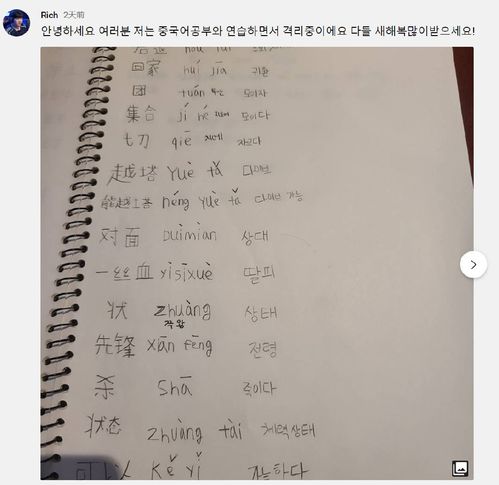 Rich 2天前
안녕하세요 여러분 저는 중국어공부와 연습하면서 격리중이에요 다들 새해복많이받으세요!
回家 huí jiā 귀환
团 tuán 모이자
集合 jí hé 모이다
切 qiē 자르다
越塔 yuè tǎ 다이브
能越塔 néng yuè tǎ 다이브 가능
对面 Duìmiàn 상대
一丝血 yìsīxuè 딸피
状 zhuàng 상태
좍왕
先锋 xiān fēng 전령
杀 shā 죽이다
状态 zhuàng tài 체력상태
可以 kě yǐ 가능하다